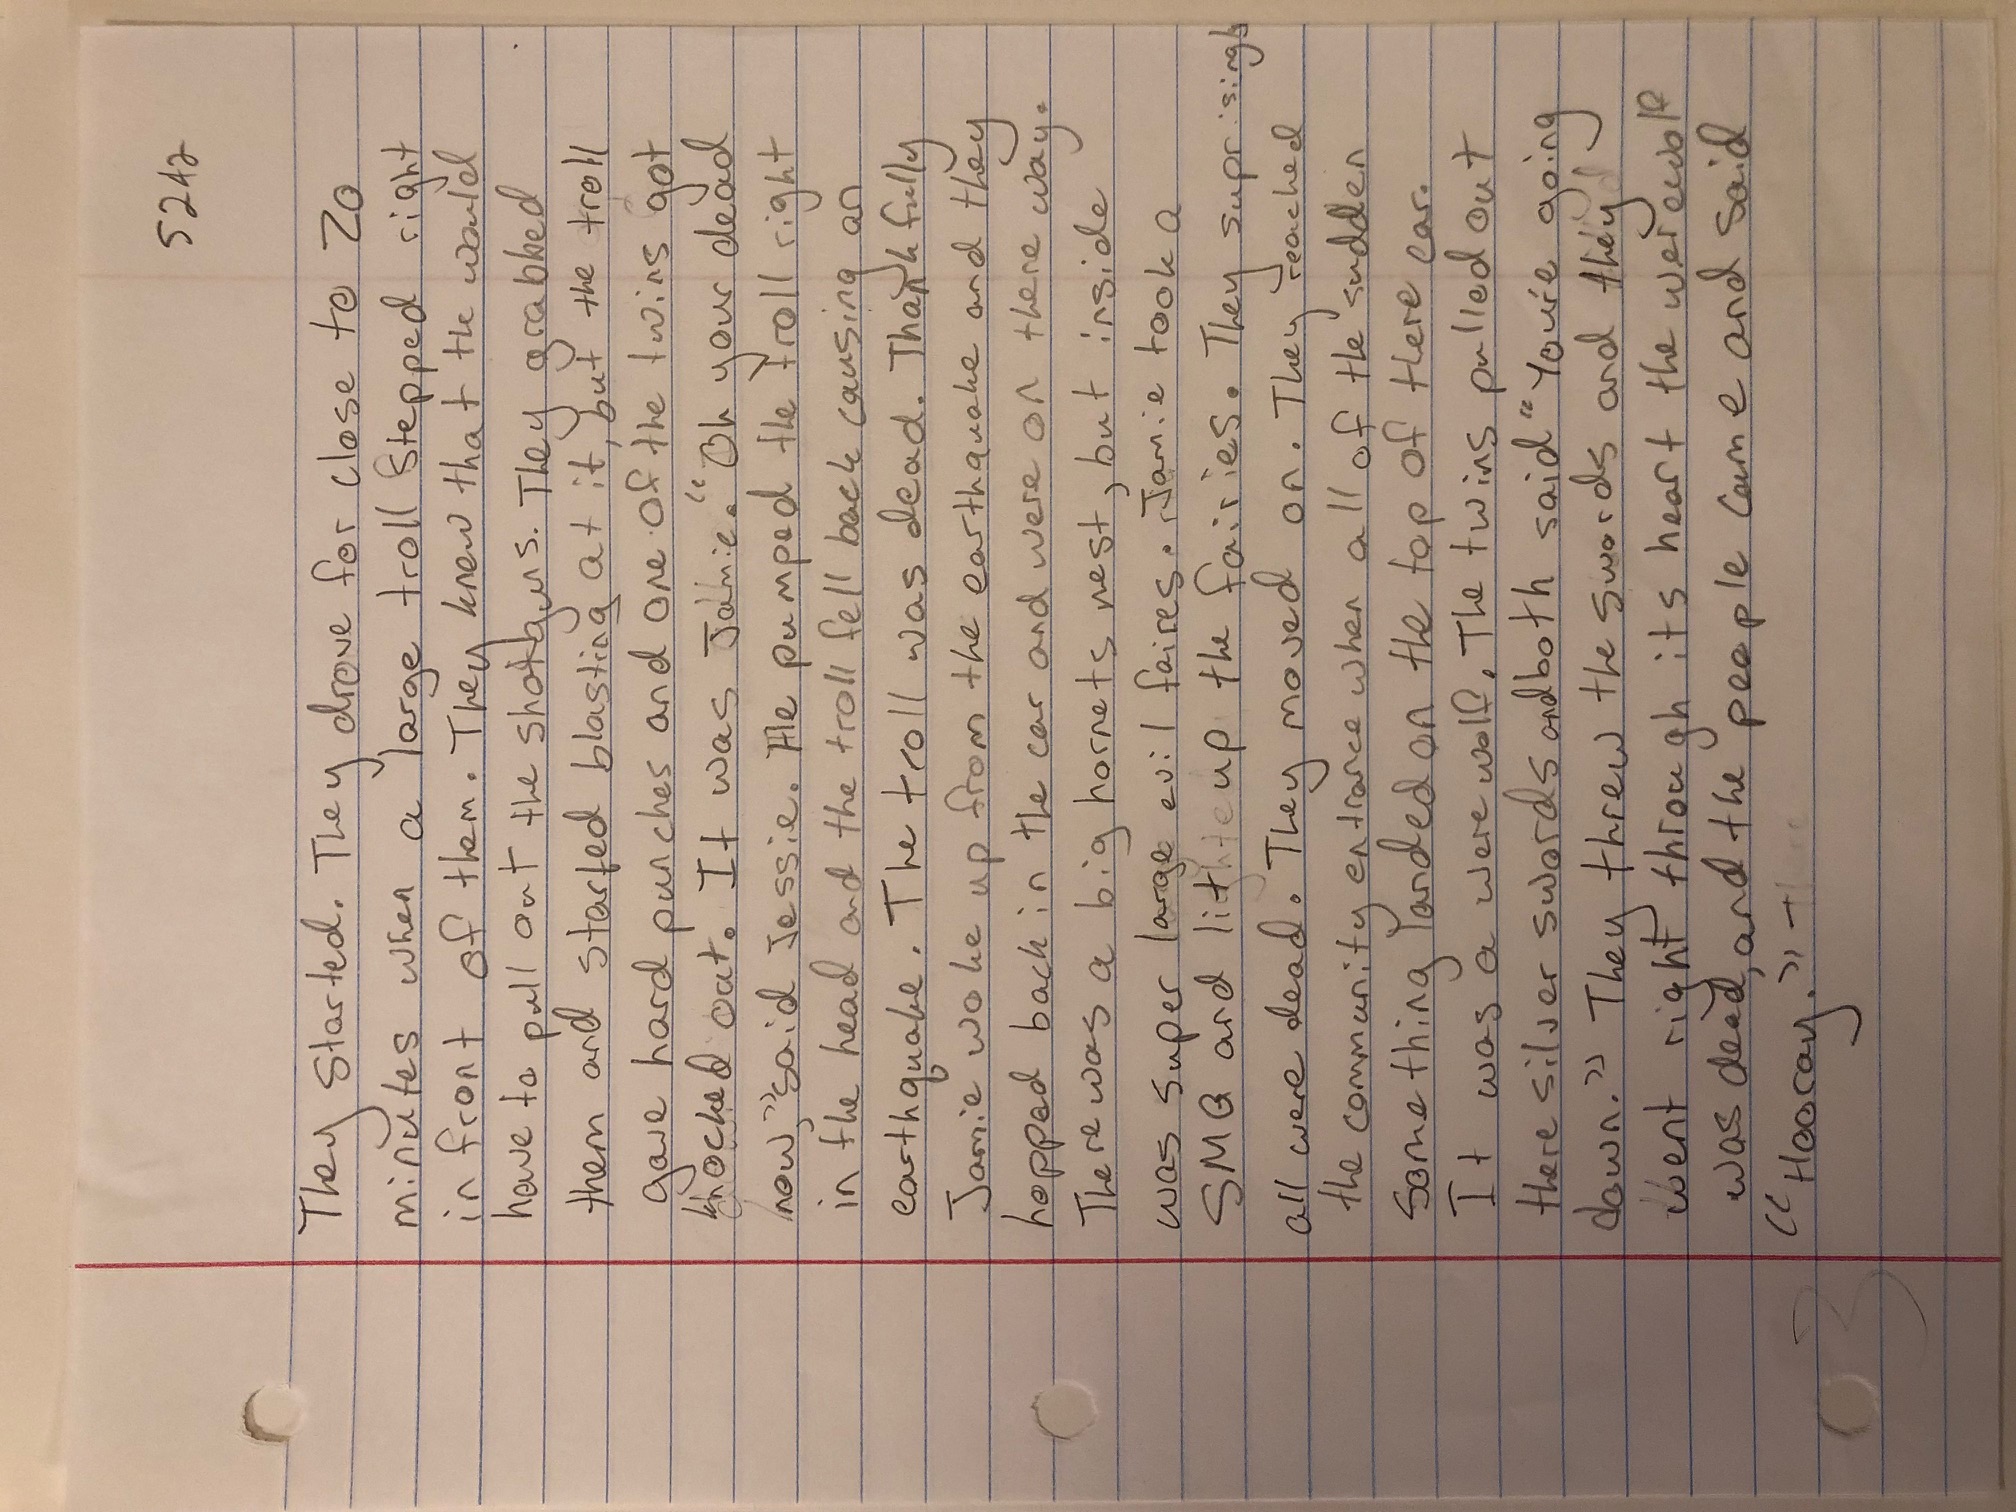 5242
They started. They drove for close to 20
minutes when a large troll stepped right
in front of them. They knew that the would
have to pull out the shotguns. They grabbed
them and started blasting at it, but the troll
gave hard punches and one of the twins got
knocked out. It was Jamie. "Oh your dead
now," said Jessie. He pumped the troll right
in the head and the troll fell back causing an
earthquake. The troll was dead. Thankfully
Jamie woke up from the earthquake and they
hopped back in the car and were on there way.
There was a big hornets nest, but inside
was super large evil faires. Jamie took a
SMG and lit up the fairies. They suprisingly
all were dead. They moved on. They reached
the community entrance when all of the sudden
something landed on the top of there car.
It was a werewolf. The twins pulled out
there silver swords and both said "You're going
down." They threw the swords and they
went right through its heart the werewolf
was dead, and the people came and said
"Hooray."
3